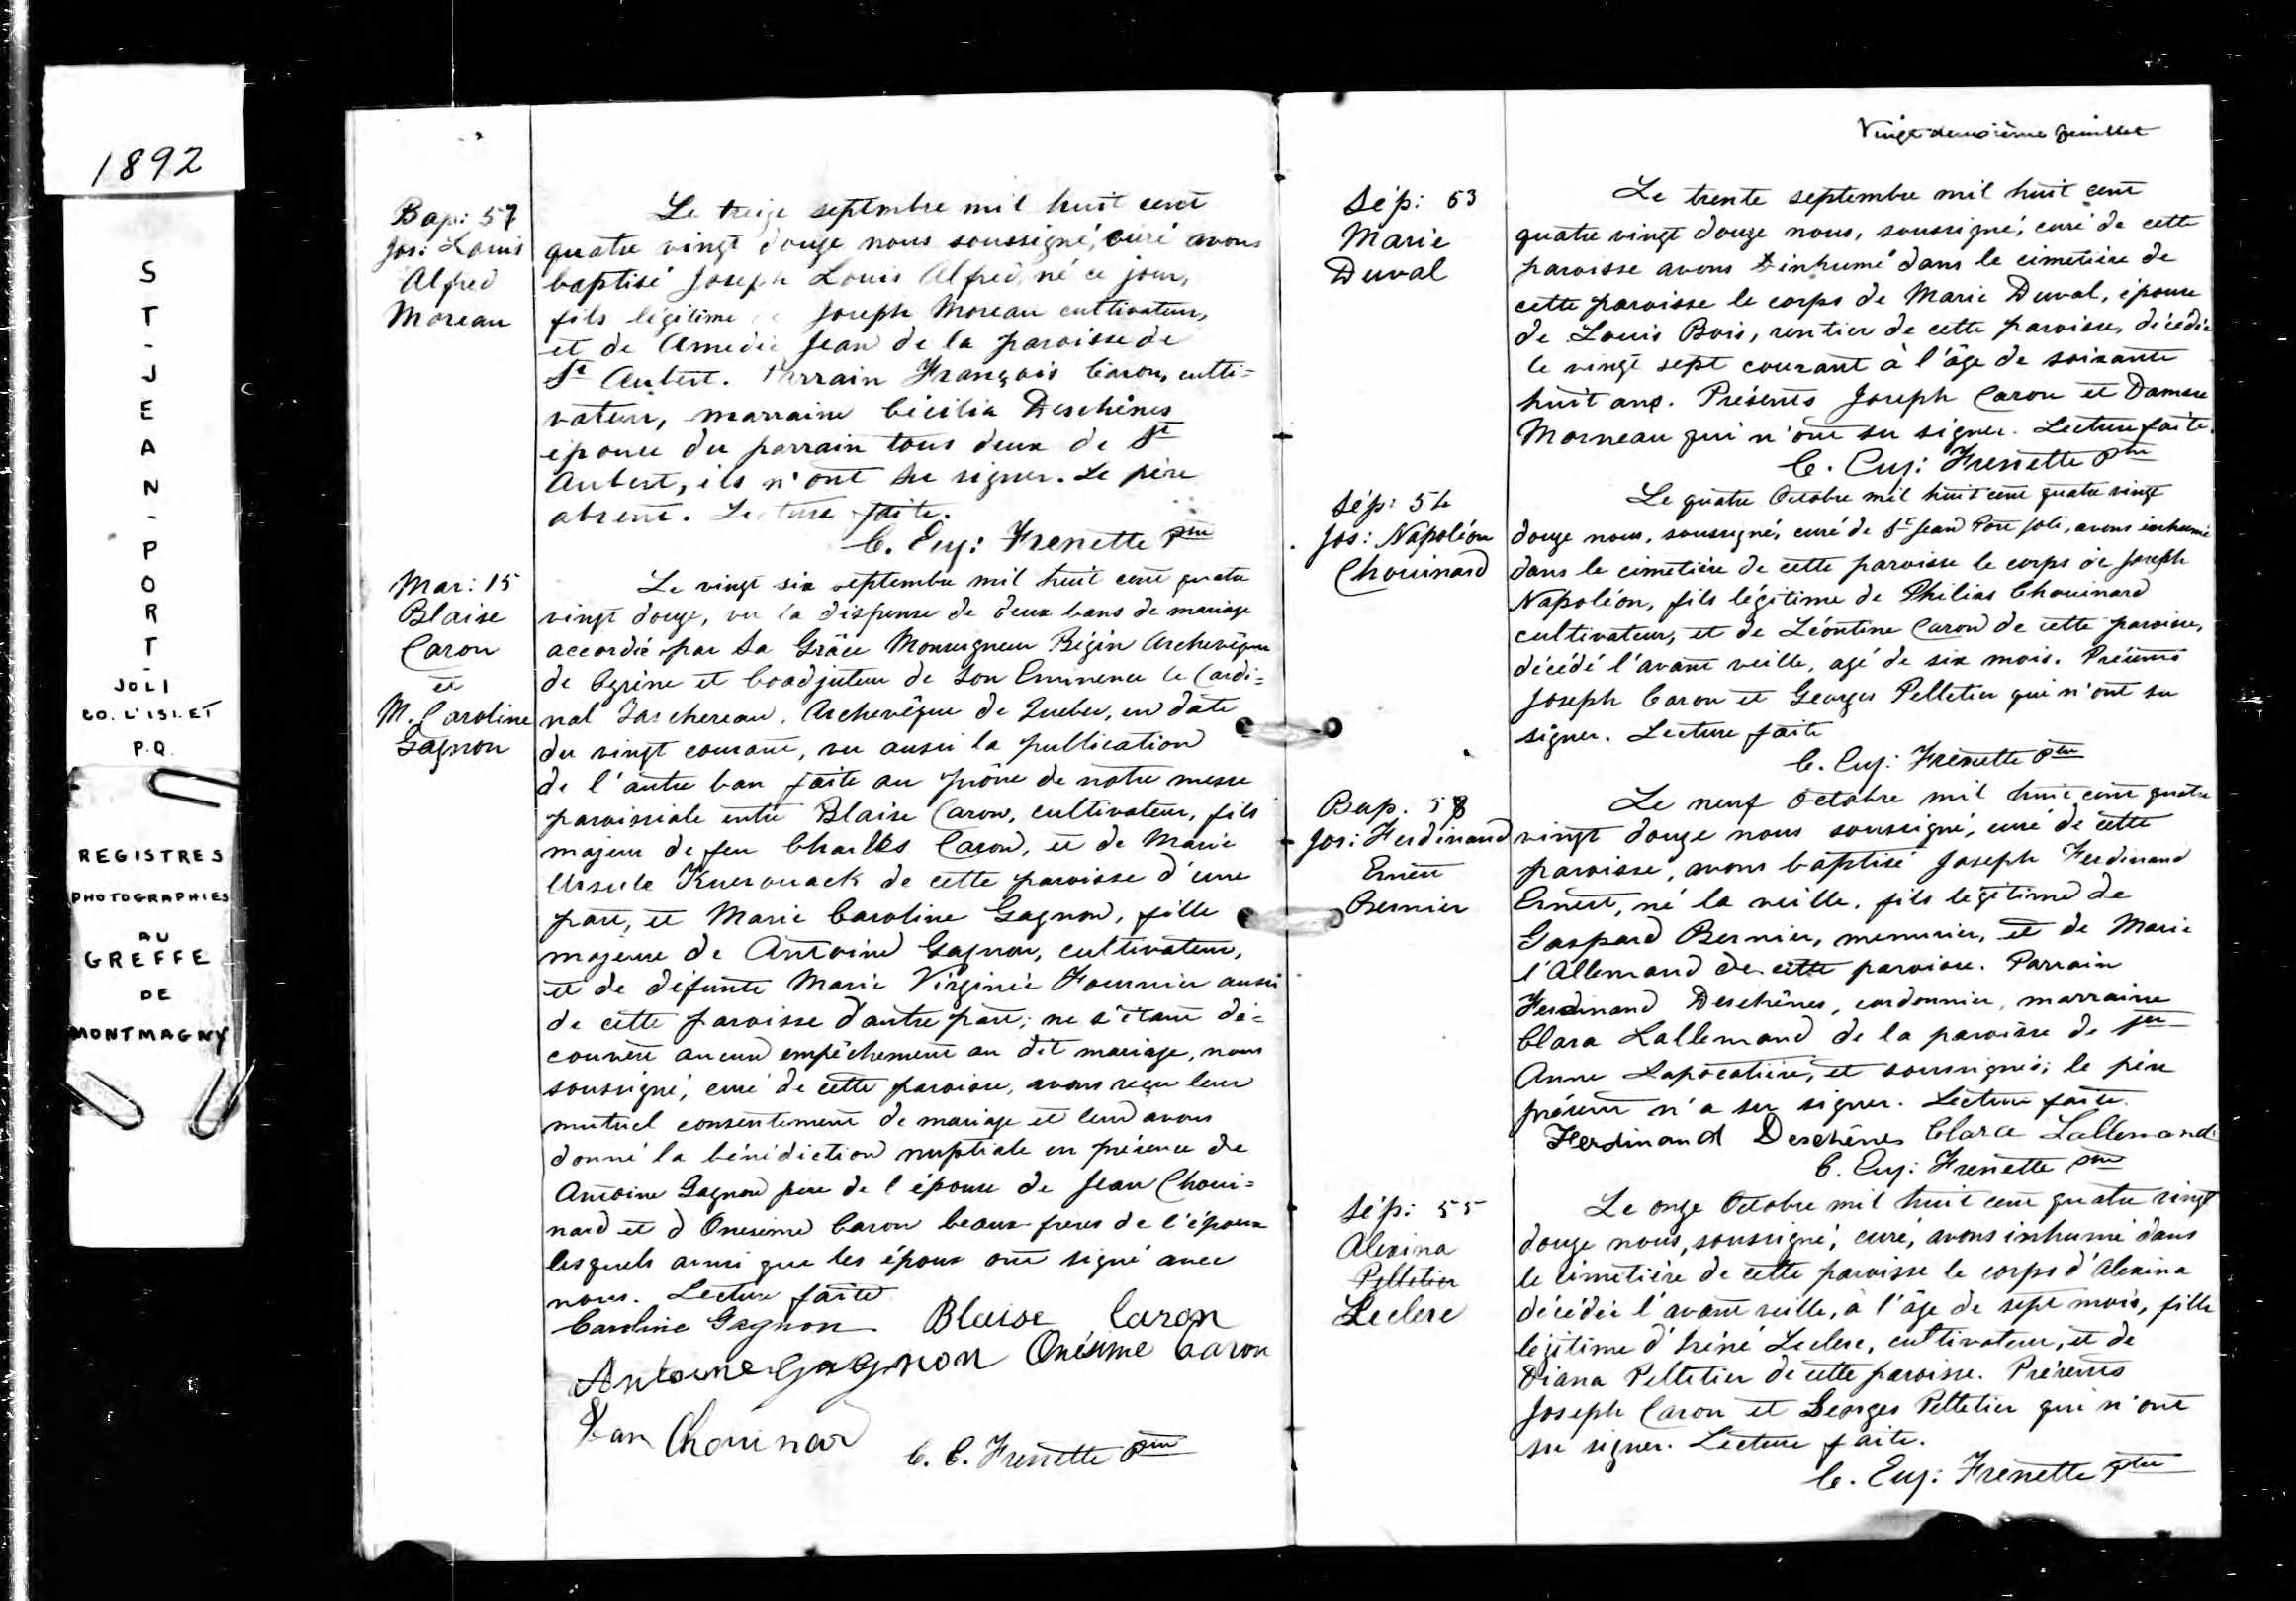 1892
ST-JEAN-PORT-
JOLI
CO. L'ISLET
P.Q.
REGISTRES
PHOTOGRAPHIES
AU
GREFFE
DE
MONTMAGNY
Bap: 57
Jos: Louis
Alfred
Moreau
Le treize septembre mil huit cent
quatre vingt douze nous soussigné, curé avons
baptisé Joseph Louis Alfred, né ce jour,
fils légitime Joseph Moreau cultivateur,
et de Amedie Jean de la paroisse de
St Aubert. Parrain François Caron, culti=
vateur, marraine Cécilia Deschênes
épouse du parrain tous deux de St
Aubert, ils n'ont su signer. Le père
absent. Lecture faite.
C. Eug: Frenette Ptre
Mar: 15
Blaise
Caron
et
M. Caroline
Gagnon
Le vingt six septembre mil huit cent quatre
vingt douze, vu la dispense de deux bans de mariage
accordée par Sa Grâce Monseigneur Bégin Archevêque
de Cyrène et Coadjuteur de Son Eminence le Cardi=
nal Taschereau, Archevêque de Quebec, en date
du vingt courant, vu aussi la publication
de l'autre ban faite au prône de notre messe
paroissiale entre Blaise Caron, cultivateur, fils
majeur de feu Charles Caron, et de Marie
Ursule Kuerouack de cette paroisse d'une
part, et Marie Caroline Gagnon, fille
majeure de Antoine Gagnon, cultivateur,
et de défunte Marie Virginie Fournier aussi
de cette paroisse d'autre part; ne s'étant dé=
couvert aucun empêchement au dit mariage, nous
soussigné, curé de cette paroisse, avons reçu leur
mutuel consentement de mariage et leur avons
donné la bénédiction nuptiale en présence de
Antoine Gagnon père de l'épouse de Jean Choui=
nard et d'Onesime Caron beaux frères de l'époux
lesquels ainsi que les époux ont signé avec
nous. Lecture faite
Caroline Gagnon Blaise Caron
Antoine Gagnon Onésime Caron
Jean Chouinar
C. E. Frenette Ptre
Vingt deuxième feuillet
Sép: 53
Marie
Duval
Le trente septembre mil huit cent
quatre vingt douze nous, soussigné, curé de cette
paroisse avons inhumé dans le cimetière de
cette paroisse le corps de Marie Duval, épouse
de Louis Bois, rentier de cette paroisse, décédée
le vingt sept courant à l'âge de soixante
huit ans. Présents Joseph Caron et Damase
Morneau qui n'ont su signer. Lecture faite.
C. Eug: Frenette Ptre
Sép: 54
Jos: Napoléon
Chouinard
Le quatre Octobre mil huit cent quatre vingt
douze nous, soussigné, curé de St Jean Port Joli, avons inhumé
dans le cimetière de cette paroisse le corps de Joseph
Napoléon, fils légitime de Philias Chouinard
cultivateur, et de Léontine Caron de cette paroisse,
décédé l'avant veille, agé de six mois. Présents
Joseph Caron et Georges Pelletier qui n'ont su
signer. Lecture faite
C. Eug: Frenette Ptre
Bap. 58
Jos: Ferdinand
Ernest
Bernier
Le neuf Octobre mil huit cent quatre
vingt douze nous soussigné, curé de cette
paroisse, avons baptisé Joseph Ferdinand
Ernest, né la veille, fils légitime de
Gaspard Bernier, menuisier, et de Marie
l'Allemand de cette paroisse. Parrain
Ferdinand Deschênes, cordonnier, marraine
Clara Lallemand de la paroisse de Ste
Anne Lapocatière, et soussignés; le père
présent n'a su signer. Lecture faite.
Ferdinand Deschênes Clara Lallemand
C. Eug: Frenette Ptre
Sép: 55
Alexina
Pelletier
Leclerc
Le onze Octobre mil huit cent quatre vingt
douze nous, soussigné, curé, avons inhumé dans
le cimetière de cette paroisse le corps d'Alexina
décédée l'avant veille, à l'âge de sept mois, fille
légitime d'Iréné Leclerc, cultivateur, et de
Diana Pelletier de cette paroisse. Présents
Joseph Caron et Georges Pelletier qui n'ont
su signer. Lecture faite.
C. Eug: Frenette Ptre